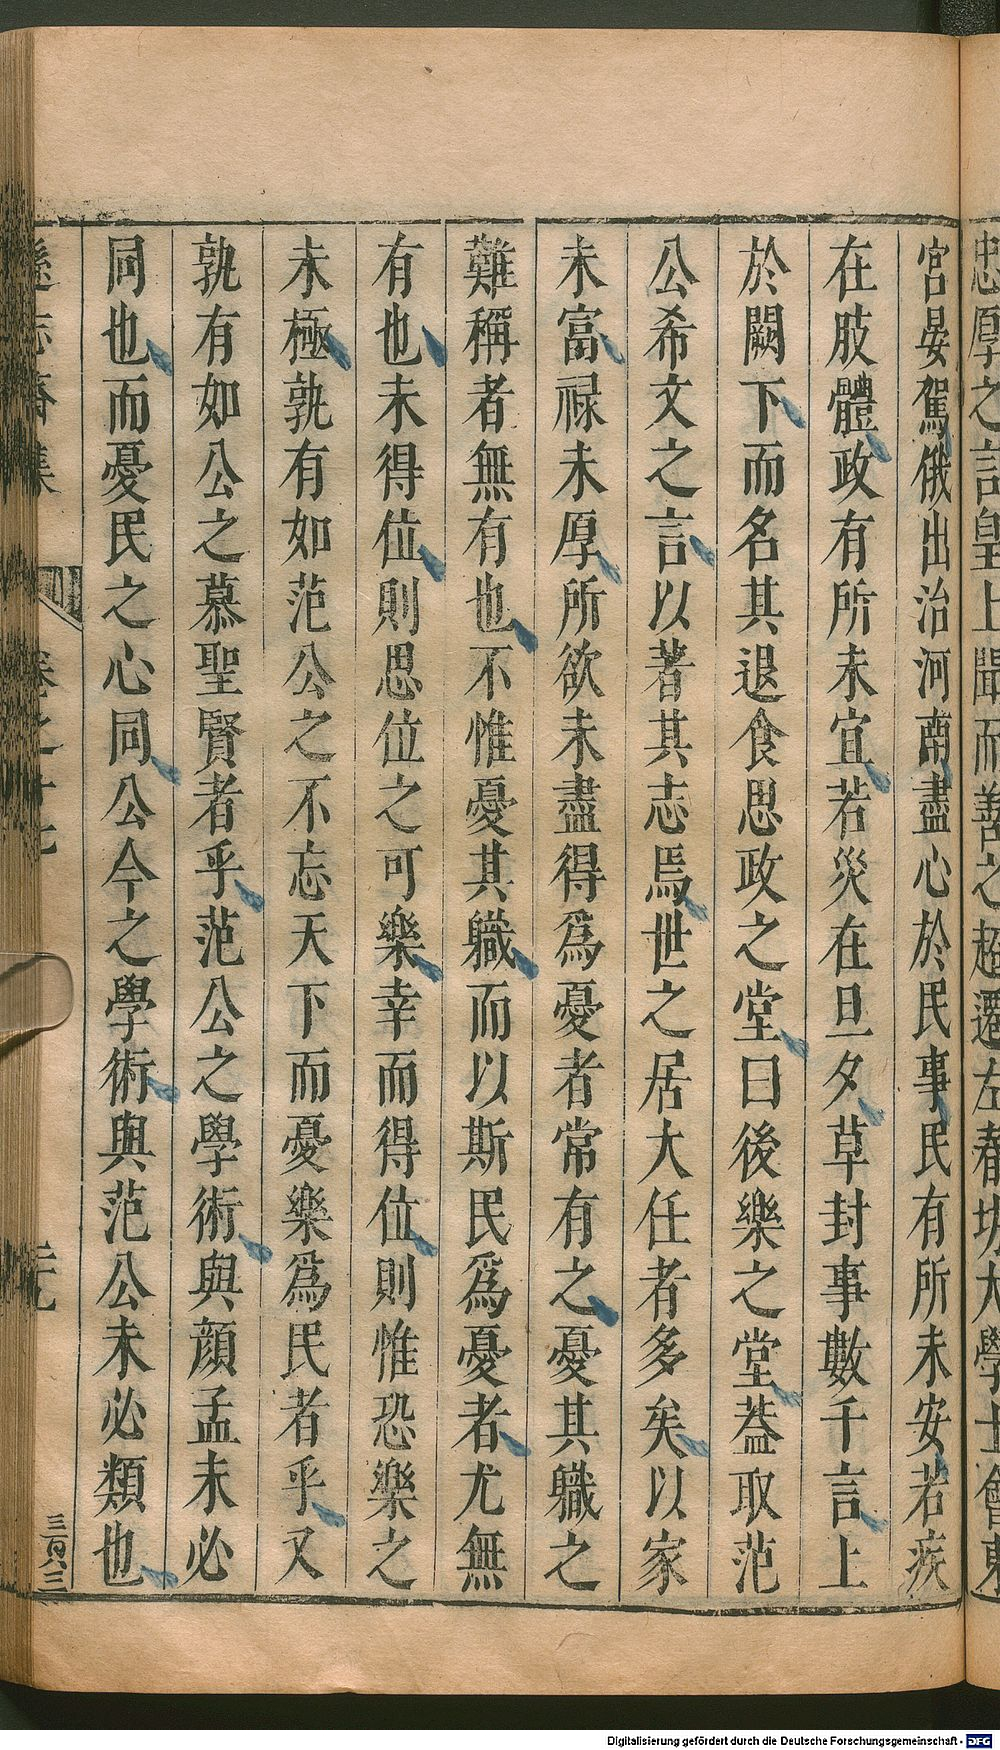 宮晏駕俄出治河南盡心於民事民有所未安若疾
在肢體政有所未宜若災在旦夕草封事數千言上
於闕下而名其退食思政之堂曰後樂之堂葢取范
公希文之言以著其志焉世之居大任者多矣以家
未富祿未厚所欲未盡得爲憂者常有之憂其職之
難稱者無有也不惟憂其職而以斯民爲憂者尤無
有也未得位則思位之可樂幸而得位則惟恐樂之
未極孰有如范公之不忘天下而憂樂爲民者乎又
孰有如公之慕聖賢者乎范公之學術與顏孟未必
同也而憂民之心同公今之學術與范公未必類也
三百八三
Digitalisierung gefördert durch die Deutsche Forschungsgemeinschaft - DFG